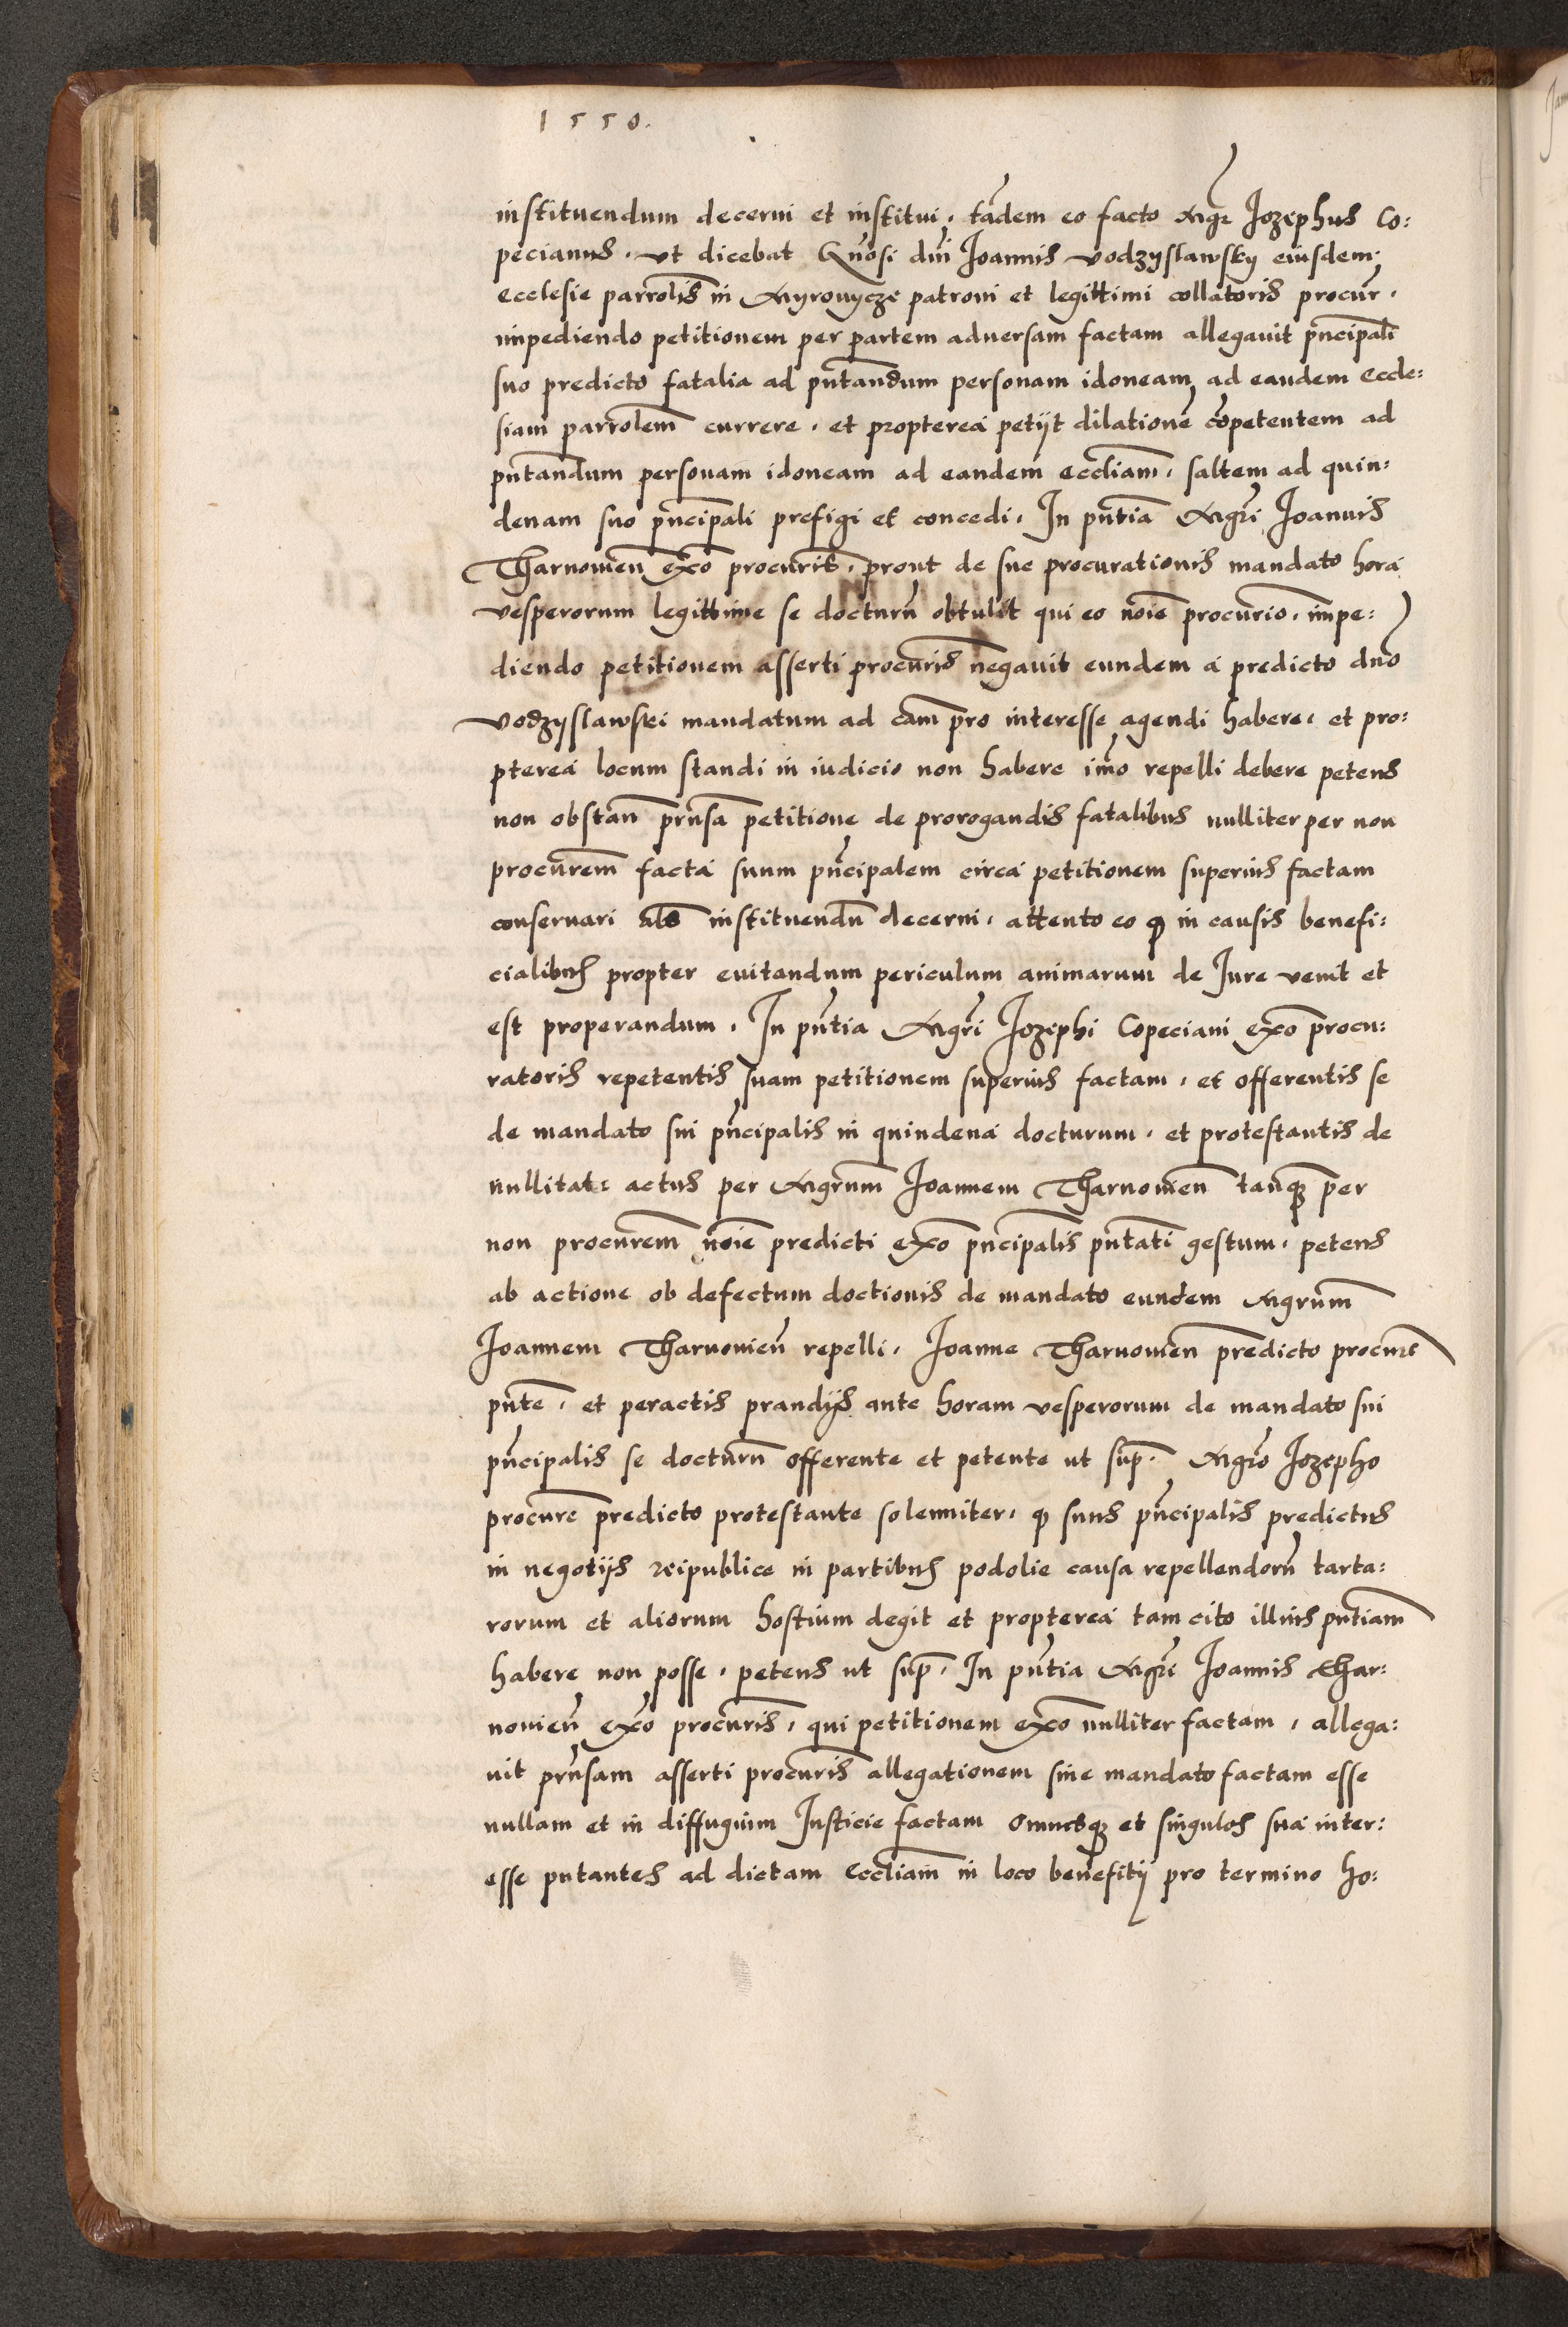 1550.
instituendum decerni et institui, tãdem eo facto Mgr̃ Jozephus Co:
pecianus, ut dicebat Gñosi dñi Joannis Vodzyslawsky eiusdem
ecclesie parrolis̃ in Myronycze patroni et legittimi collatoris procur̃.
impediendo petitionem per partem aduersam factam allegauit pr̃ncipali
suo predicto fatalia ad pñtandum personam idoneam ad eandem eccle:
siam parrolem̃ currere, et propterea petijt dilationẽ cõpetentem ad
pñtandum personam idoneam ad eandem eccliam̃, saltem ad quin:
denam suo pñcipali prefigi et concedi, In pñtia Mgr̃i Joannis
Tharnouien̄ exõ procuris̃, prout de sue procurationis mandato hora
vesperorum legittime se docturũ obtulit qui eo noiẽ procurio, impe:
diendo petitionem asserti procuris̃ negauit eundem a predicto dño
Vodzyslawski mandatum ad cam̃ pro interesse agendi habere, et pro:
pterea locum standi in iudicio non habere im̃o repelli debere petens
non obstañ prñsa petitione de prorogandis fatalibus nulliter per non
procurem̃ facta suum pñcipalem circa petitionem superius factam
conseruari als̃ instituendũ decerni, attento eo ꝙ in causis benefi:
cialibus propter euitandum periculum animarum de Jure venit et
est properandum, In pñtia Mgr̃i Jozephi Copeciani exõ procu:
ratoris repetentis suam petitionem superius factam, et offerentis se
de mandato sui pñcipalis in quindena docturum, et protestantis de
nullitate actus per Mgrum̃ Joannem Tharnouien̄ tanqȝ per
non procurem̃ noiẽ predicti exõ pñcipalis pñtati gestum, petens
ab actione ob defectum doctionis de mandato eundem Mgrum̃
Joannem Tharnouien̄ repelli, Joanne Tharnouien̄ predicto procurẽ
pñte, et peractis prandijs ante horam vesperorum de mandato sui
pñcipalis se docturũ offerente et petente ut sup̃. Mgr̃o Jozepho
procurẽ predicto protestante solenniter, ꝙ suus pñcipalis predictus
in negotijs reipublice in partibus podolie causa repellendorũ tarta:
rorum et aliorum hostium degit et propterea tam cito illius pñtiam
habere non posse, petens ut sup̃. In pñtia Mgr̃i Joannis Thar:
nouien̄ exõ procuris̃, qui petitionem exõ nulliter factam, allega:
uit prñsam asserti procuris̃ allegationem sine mandato factam esse
nullam et in diffugium Justicie factam omnesqȝ et singulos sua inter:
esse putantes ad dictam eccliam̃ in loco benefitij pro termino ho: